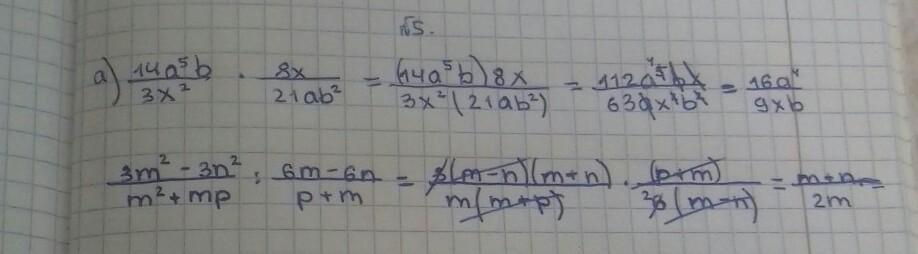 №5.
а) 14a⁵b/3x² · 8x/21ab² = (14a⁵b)8x/3x²(21ab²) = 112a⁵bx/63ax²b² = 16a⁴/9xb
3m² - 3n²/m² + mp : 6m - 6n/p + m = 3(m - n)(m + n)/m(m + p) · (p + m)/6(m - n) = m + n/2m =